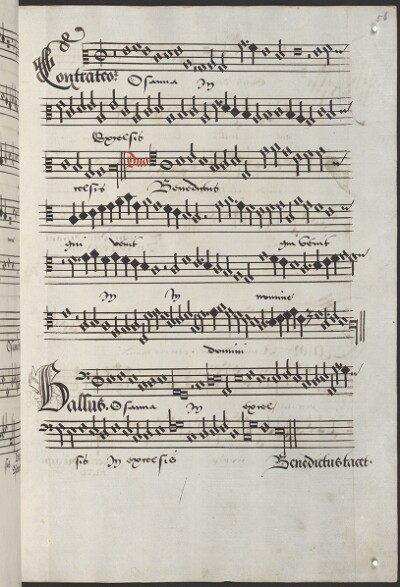 56
Contrateor
Osanna In
Excelsis
celsis Duo Benedictus
qui venit qui venit
In In nomine
domini
Bassus. Osanna In excel
sis In excelsis Benedictus tacet.